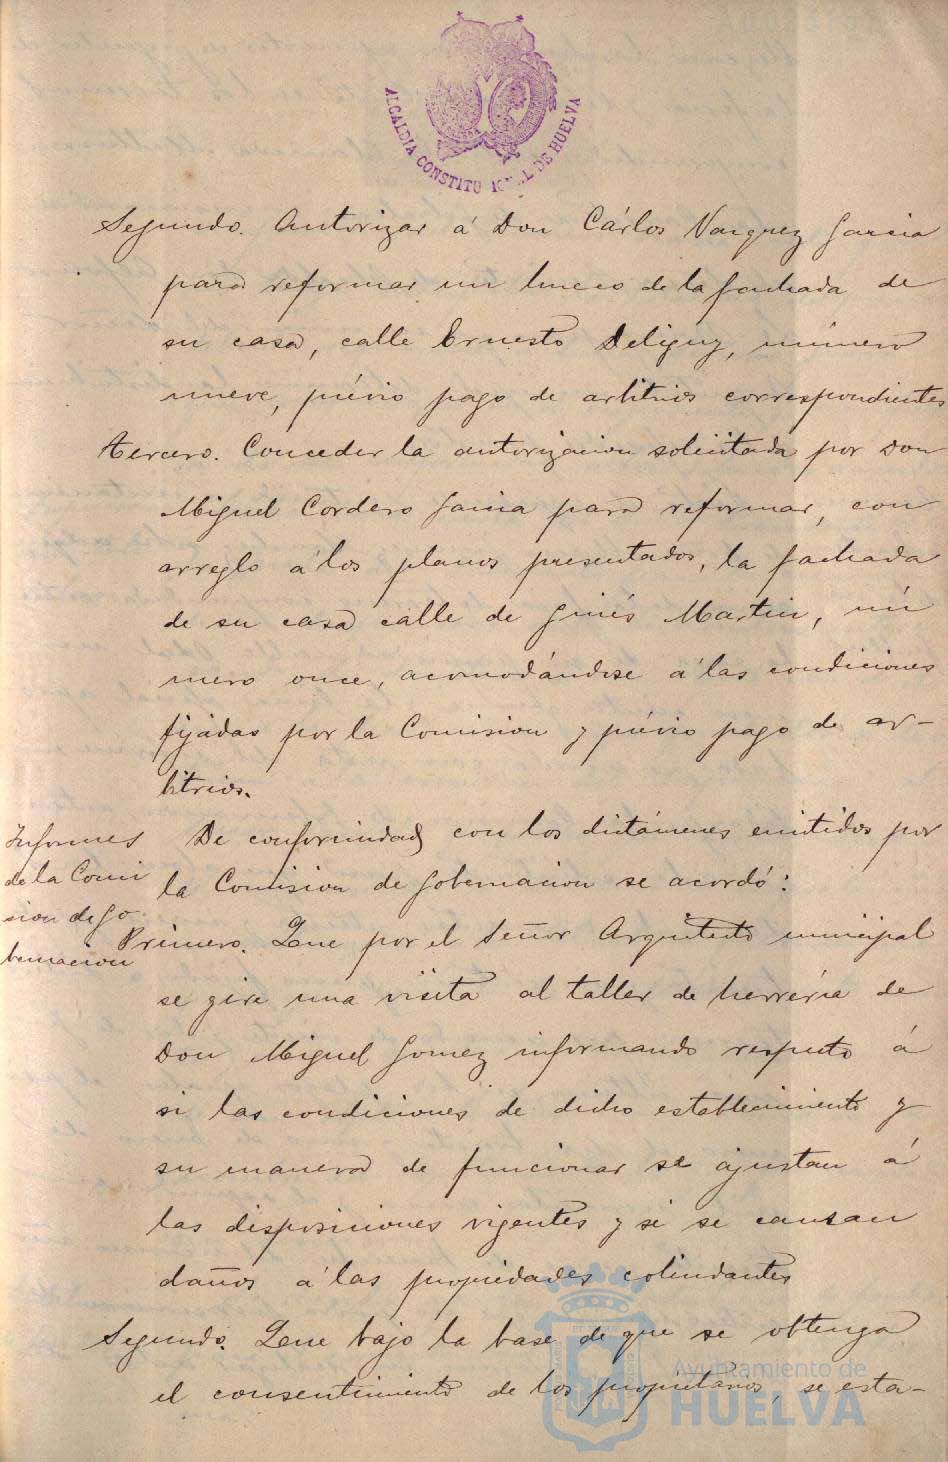 ALCALDIA CONSTITUCIONAL DE HUELVA
Segundo. Autorizar á Don Cárlos Vazquez Garcia
para reformar un hueco de la fachada de
su casa, calle Ernesto Deligny, número
nueve, prévio pago de arbitrios correspondientes
Tercero. Conceder la autorizacion solicitada por Don
Miguel Cordero Garcia para reformar, con
arreglo á los planos presentados, la fachada
de su casa calle de Ginés Martin, nú
mero once, acomodándose á las condiciones
fijadas por la Comision y prévio pago de ar-
bitrios.
Informes
de la Comi
sion de Go
bernacion
De conformidad con los dictámenes emitidos por
la Comision de Gobernacion se acordó:
Primero. Que por el Señor Arquitecto municipal
se gire una visita al taller de herrería de
Don Miguel Gomez informando respecto á
si las condiciones de dicho establecimiento y
su manera de funcionar se ajustan á
las disposiciones vigentes y si se causan
daños á las propiedades colindantes
Segundo. Que bajo la base de que se obtenga
el consentimiento de los propietarios, se esta-
Ayuntamiento de
HUELVA